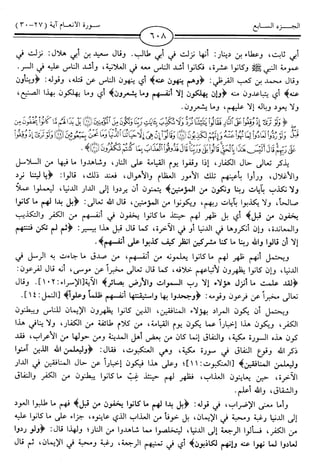 الجزء السابع
٦٠٨
سورة الأنعام آية (٢٧-٣٠)
أبي ثابت، وعطاء بن دينار: أنها نزلت في أبي طالب. وقال سعيد بن أبي هلال: نزلت في
عمومة النبي ﷺ وكانوا عشرة، فكانوا أشد الناس معه في العلانية، وأشد الناس عليه في السر.
وقال محمد بن كعب القرظي: ﴿وهم ينهون عنه﴾ أي ينهون الناس عن قتله، وقوله: ﴿وينأون
عنه﴾ أي يتباعدون منه ﴿وإن يهلكون إلا أنفسهم وما يشعرون﴾ أي وما يهلكون بهذا الصنيع،
ولا يعود وباله إلا عليهم، وما يشعرون.
﴿وَلَوْ تَرَىٰ إِذْ وُقِفُوا عَلَى النَّارِ فَقَالُوا يَا لَيْتَنَا نُرَدُّ وَلَا نُكَذِّبَ بِآيَاتِ رَبِّنَا وَنَكُونَ مِنَ الْمُؤْمِنِينَ بَلْ بَدَا لَهُمْ مَا كَانُوا يُخْفُونَ مِنْ
قَبْلُ وَلَوْ رُدُّوا لَعَادُوا لِمَا نُهُوا عَنْهُ وَإِنَّهُمْ لَكَاذِبُونَ وَقَالُوا إِنْ هِيَ إِلَّا حَيَاتُنَا الدُّنْيَا وَمَا نَحْنُ بِمَبْعُوثِينَ وَلَوْ تَرَىٰ إِذْ
وُقِفُوا عَلَىٰ رَبِّهِمْ قَالَ أَلَيْسَ هَٰذَا بِالْحَقِّ قَالُوا بَلَىٰ وَرَبِّنَا قَالَ فَذُوقُوا الْعَذَابَ بِمَا كُنْتُمْ تَكْفُرُونَ﴾
يذكر تعالى حال الكفار، إذا وقفوا يوم القيامة على النار، وشاهدوا ما فيها من السلاسل
والأغلال، ورأوا بأعينهم تلك الأمور العظام والأهوال، فعند ذلك، قالوا: ﴿يا ليتنا نرد
ولا نكذب بآيات ربنا ونكون من المؤمنين﴾ يتمنون أن يردوا إلى الدار الدنيا، ليعملوا عملاً
صالحاً، ولا يكذبوا بآيات ربهم، ويكونوا من المؤمنين، قال الله تعالى: ﴿بل بدا لهم ما كانوا
يخفون من قبل﴾ أي بل ظهر لهم حينئذ ما كانوا يخفون في أنفسهم من الكفر والتكذيب
والمعاندة، وإن أنكروها في الدنيا أو في الآخرة، كما قال قبل هذا بيسير: ﴿ثم لم تكن فتنتهم
إلا أن قالوا والله ربنا ما كنا مشركين انظر كيف كذبوا على أنفسهم﴾.
ويحتمل أنهم ظهر لهم ما كانوا يعلمونه من أنفسهم، من صدق ما جاءت به الرسل في
الدنيا، وإن كانوا يظهرون لأتباعهم خلافه، كما قال تعالى مخبراً عن موسى، أنه قال لفرعون:
﴿لقد علمت ما أنزل هؤلاء إلا رب السموات والأرض بصائر﴾ الآية[الإسراء: ١٠٢]. وقال
تعالى مخبراً عن فرعون وقومه: ﴿وجحدوا بها واستيقنتها أنفسهم ظلماً وعلواً﴾ [النمل: ١٤].
ويحتمل أن يكون المراد بهؤلاء المنافقين، الذين كانوا يظهرون الإيمان للناس ويبطنون
الكفر، ويكون هذا إخباراً عما يكون يوم القيامة، من كلام طائفة من الكفار، ولا ينافي هذا
كون هذه السورة مكية، والنفاق إنما كان من بعض أهل المدينة ومن حولها من الأعراب، فقد
ذكر الله وقوع النفاق في سورة مكية، وهي العنكبوت، فقال: ﴿وليعلمن الله الذين آمنوا
وليعلمن المنافقين﴾ [العنكبوت: ١١] وعلى هذا فيكون إخباراً عن حال المنافقين في الدار
الآخرة، حين يعاينون العذاب، فظهر لهم حينئذ غِبُّ ما كانوا يبطنون من الكفر والنفاق
والشقاق، والله أعلم.
وأما معنى الإضراب، في قوله: ﴿بل بدا لهم ما كانوا يخفون من قبل﴾ فهم ما طلبوا العود
إلى الدنيا رغبة ومحبة في الإيمان، بل خوفاً من العذاب الذي عاينوه، جزاء على ما كانوا عليه
من الكفر، فسألوا الرجعة إلى الدنيا، ليتخلصوا مما شاهدوا من النار، ولهذا قال: ﴿ولو ردوا
لعادوا لما نهوا عنه وإنهم لكاذبون﴾ أي في تمنيهم الرجعة، رغبة ومحبة في الإيمان، ثم قال